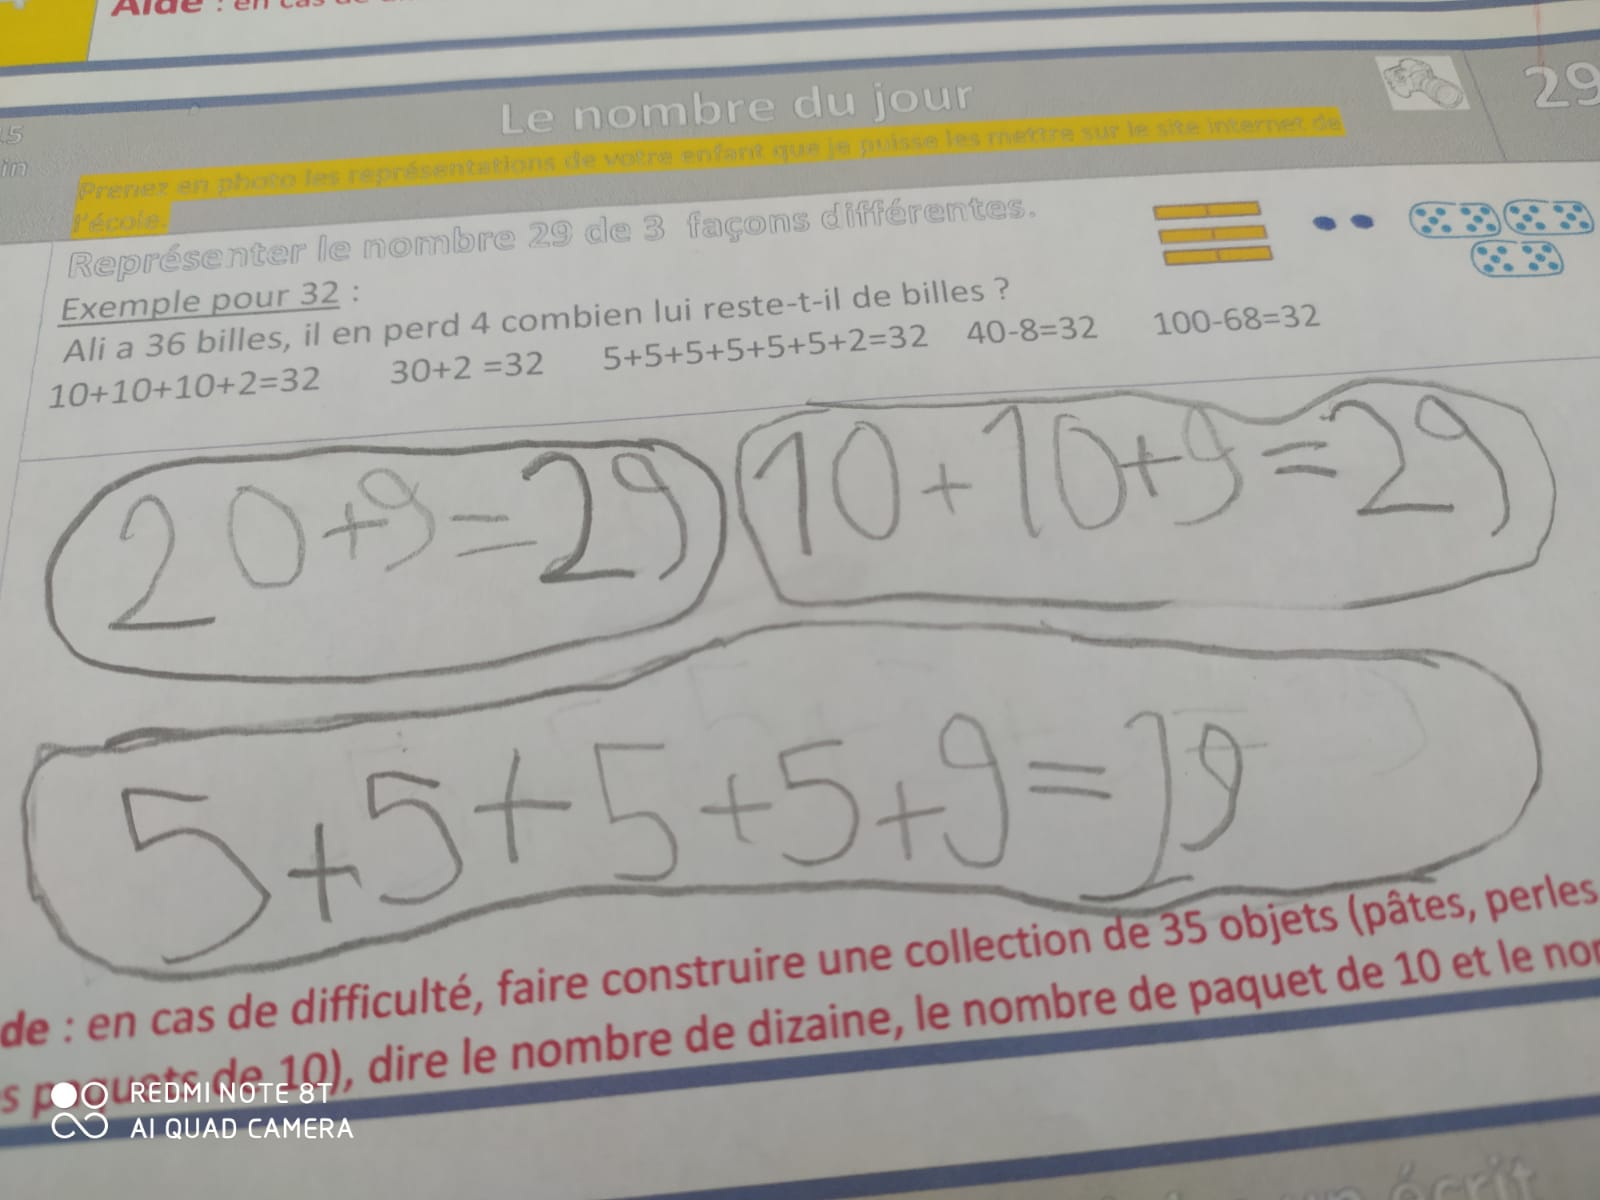 Aide : en cas de
Le nombre du jour
29
15
in
Prenez en photo les représentations de votre enfant que je puisse les mettre sur le site internet de
l'école.
Représenter le nombre 29 de 3 façons différentes.
Exemple pour 32 :
Ali a 36 billes, il en perd 4 combien lui reste-t-il de billes ?
10+10+10+2=32 30+2 =32 5+5+5+5+5+5+2=32 40-8=32 100-68=32
20+9=29 10+10+9=29
5+5+5+5+9=19
de : en cas de difficulté, faire construire une collection de 35 objets (pâtes, perles
s paquets de 10), dire le nombre de dizaine, le nombre de paquet de 10 et le nom
REDMI NOTE 8T
AI QUAD CAMERA
écrit